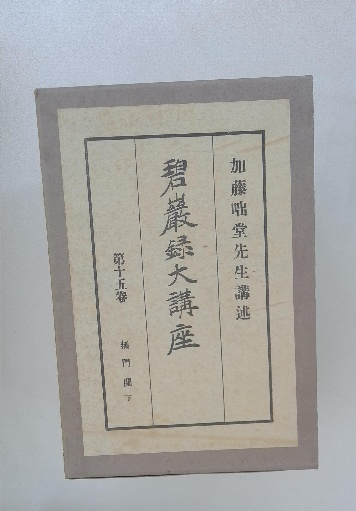 加藤咄堂先生講述
碧巖録大講座
第十五卷